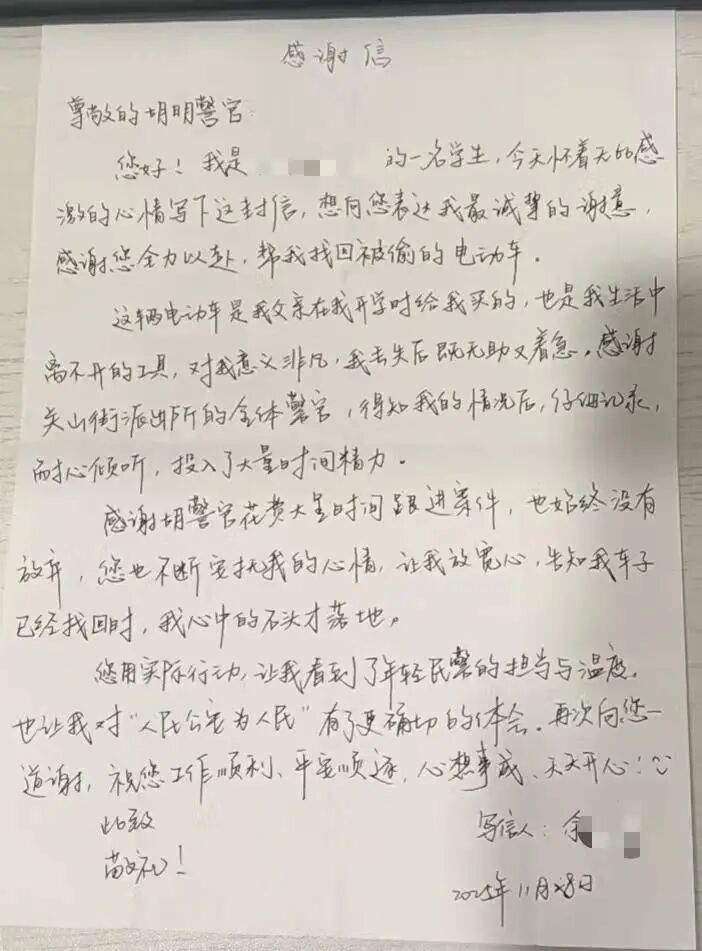 感谢信
尊敬的胡明警官:
您好！我是 的一名学生，今天怀着无比感
激的心情写下这封信，想向您表达我最诚挚的谢意，
感谢您全力以赴，帮我找回被偷的电动车。
这辆电动车是我父亲在我开学时给我买的，也是我生活中
离不开的工具，对我意义非凡，我丢失后既无助又着急。感谢
关山街派出所的全体警官，得知我的情况后，仔细记录，
耐心倾听，投入了大量时间精力。
感谢胡警官花费大量时间跟进案件，也始终没有
放弃，您也不断安抚我的心情，让我放宽心，告知我车子
已经找回时，我心中的石头才落地。
您用实际行动，让我看到了年轻民警的担当与温度，
也让我对“人民公安为人民”有了更确切的体会。再次向您一
道谢，祝您工作顺利、平安顺遂，心想事成、天天开心！
此致 写信人：余
敬礼！
2025年11月28日